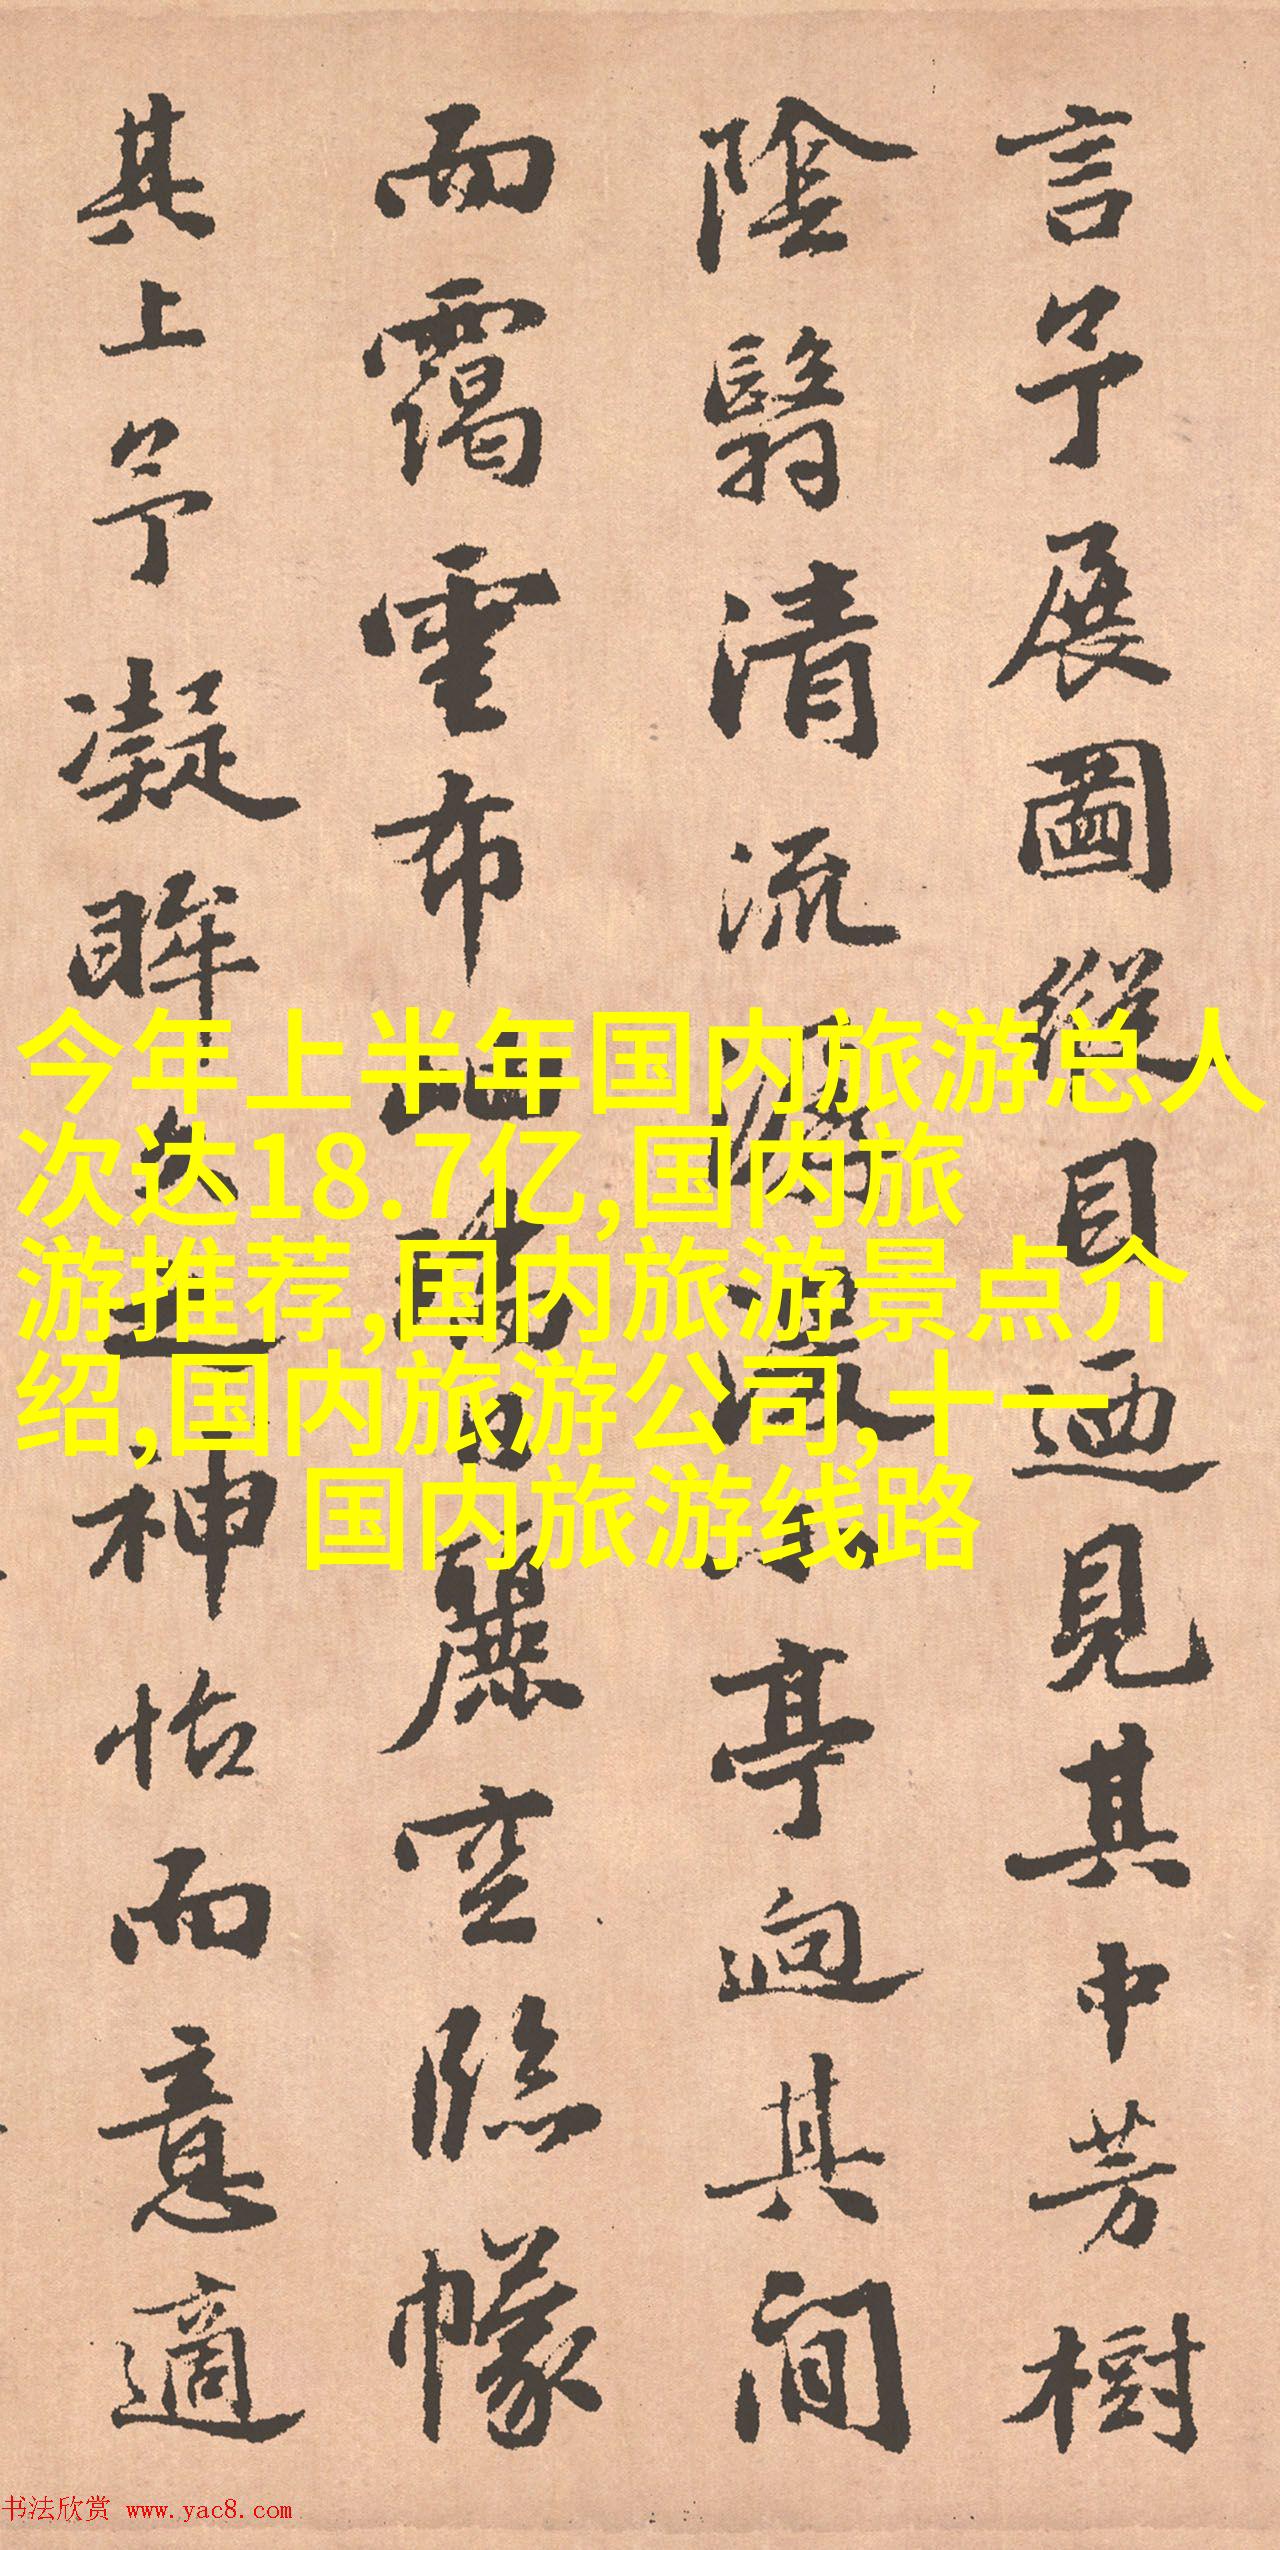 言予展圖縱目迺見其中芳樹
陰翳清流亭逈其間
而靄雲布麗空臨幪
其上予凝眸久之神怡而意適
今年上半年国内旅游总人
次达18.7亿,国内旅
游推荐,国内旅游景点介
绍,国内旅游公司,十一
国内旅游线路
书法欣赏 www.yac8.com